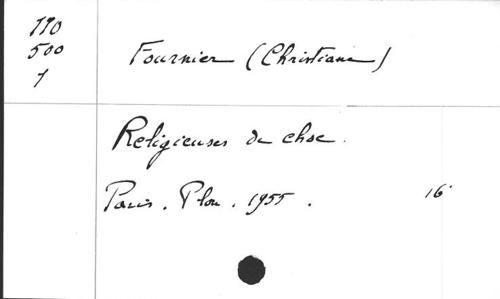 170
500
1
Fournier (Christiane)
Religieuses de choc.
Paris. Plon. 1955. 16°